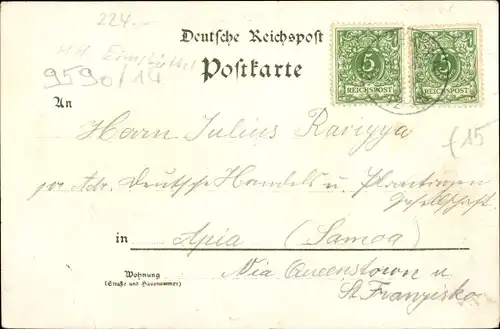 224.-
Deutsche Reichspost
Postkarte
9590/14
5
REICHSPOST
5
REICHSPOST
An
Herrn Julius
15
per Adr. Deutsche Handels u. Plantagen
Gesellschaft
in Apia (Samoa)
Wohnung
(Straße und Hausnummer)
Via Queenstown u.
St. Franzisko